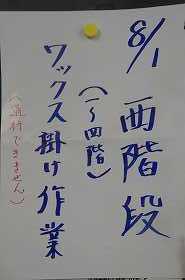 8/1
西階段
(1〜四階)
ワックス掛け作業
(通行できません)